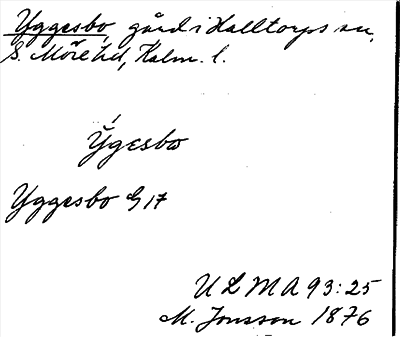 Yggesbo, gård i Halltorps sn,
S. Möre hd, Kalm. l.
Ýgesbω
Yggesbo G 17
ULMA 93:25
M. Jonsson 1876